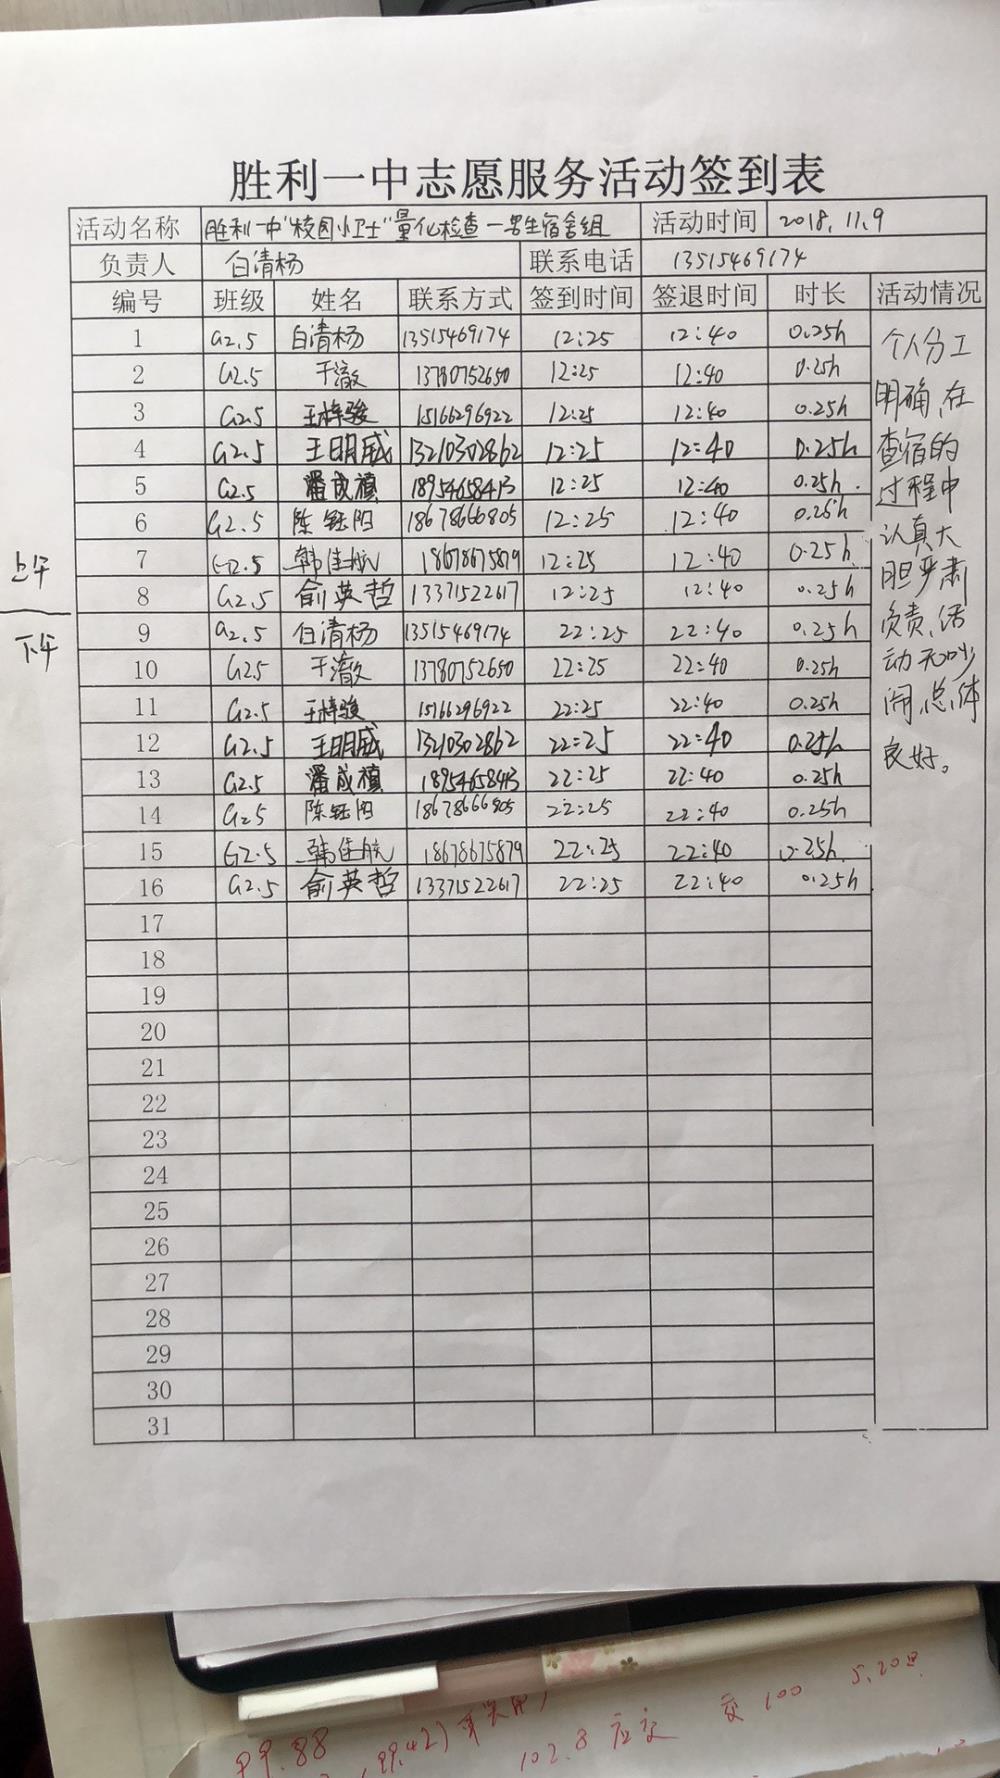 胜利一中志愿服务活动签到表
活动名称 胜利一中"校园小卫士"量化检查—男生宿舍组 活动时间 2018.11.9
负责人 白清杨 联系电话 13515469174
编号 班级 姓名 联系方式 签到时间 签退时间 时长 活动情况
1 G2.5 白清杨 13515469174 12:25 12:40 0.25h
2 G2.5 于澈 13780752650 12:25 12:40 0.25h
3 G2.5 王梓骏 15166296922 12:25 12:40 0.25h
4 G2.5 王明威 13210302862 12:25 12:40 0.25h
5 G2.5 潘成禛 18954658413 12:25 12:40 0.25h.
6 G2.5 陈钰阳 18678666805 12:25 12:40 0.25h
7 G2.5 韩佳航 18678675879 12:25 12:40 0.25h
8 G2.5 俞英哲 13371522617 12:25 12:40 0.25h
9 G2.5 白清杨 13515469174 22:25 22:40 0.25h
10 G2.5 于澈 13780752650 22:25 22:40 0.25h
11 G2.5 王梓骏 15166296922 22:25 22:40 0.25h
12 G2.5 王明威 13210302862 22:25 22:40 0.25h
13 G2.5 潘成禛 18954658413 22:25 22:40 0.25h
14 G2.5 陈钰阳 18678666805 22:25 22:40 0.25h
15 G2.5 韩佳航 18678675879 22:25 22:40 0.25h.
16 G2.5 俞英哲 13371522617 22:25 22:40 0.25h
17
18
19
20
21
22
23
24
25
26
27
28
29
30
31
个人分工
明确,在
查宿的
过程中
认真大
胆严肃
负责,活
动无吵
闹,总体
良好。
上午
下午
99.88
99.42)
102.8 应交 交100 5.20